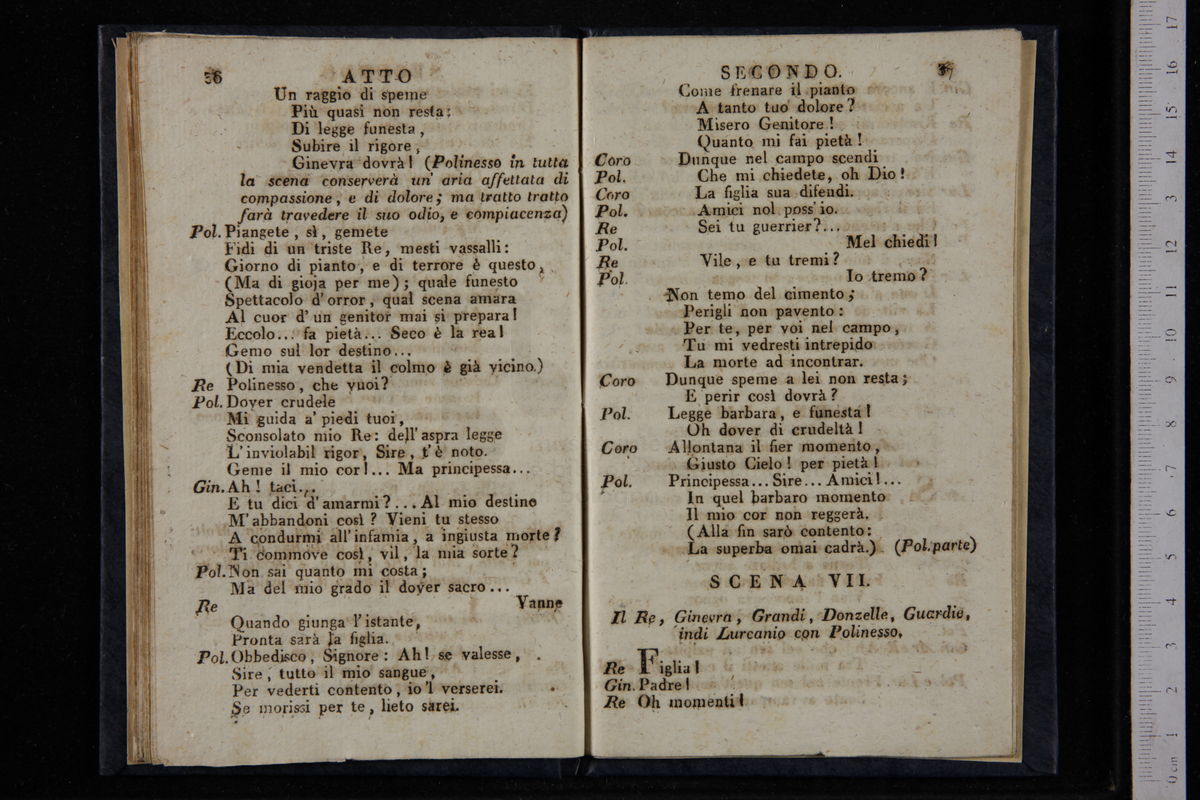 36 ATTO
Un raggio di speme
Più quasi non resta:
Di legge funesta,
Subire il rigore,
Ginevra dovrà! (Polinesso in tutta
la scena conserverà un' aria affettata di
compassione, e di dolore; ma tratto tratto
farà travedere il suo odio, e compiacenza)
Pol. Piangete, sì, gemete
Fidi di un triste Re, mesti vassalli:
Giorno di pianto, e di terrore è questo,
(Ma di gioja per me); quale funesto
Spettacolo d'orror, qual scena amara
Al cuor d'un genitor mai si prepara!
Eccolo... fa pietà... Seco è la rea!
Gemo sul lor destino...
(Di mia vendetta il colmo è già vicino.)
Re Polinesso, che vuoi?
Pol. Dover crudele
Mi guida a' piedi tuoi,
Sconsolato mio Re: dell'aspra legge
L'inviolabil rigor, Sire, t'è noto.
Geme il mio cor!... Ma principessa...
Gin. Ah! taci...
E tu dici d'amarmi?... Al mio destino
M'abbandoni così? Vieni tu stesso
A condurmi all'infamia, a ingiusta morte?
Ti commove così, vil, la mia sorte?
Pol. Non sai quanto mi costa;
Ma del mio grado il dover sacro...
Re Vanne
Quando giunga l'istante,
Pronta sarà la figlia.
Pol. Obbedisco, Signore: Ah! se valesse,
Sire, tutto il mio sangue,
Per vederti contento, io'l verserei.
Se morissi per te, lieto sarei.
SECONDO. 37
Come frenare il pianto
A tanto tuo dolore?
Misero Genitore!
Quanto mi fai pietà!
Coro Dunque nel campo scendi
Pol. Che mi chiedete, oh Dio!
Coro La figlia sua difendi.
Pol. Amici nol poss'io.
Re Sei tu guerrier?...
Pol. Mel chiedi!
Re Vile, e tu tremi?
Pol. Io tremo?
Non temo del cimento;
Perigli non pavento:
Per te, per voi nel campo,
Tu mi vedresti intrepido
La morte ad incontrar.
Coro Dunque speme a lei non resta;
E perir così dovrà?
Pol. Legge barbara, e funesta!
Oh dover di crudeltà!
Coro Allontana il fier momento,
Giusto Cielo! per pietà!
Pol. Principessa... Sire... Amici!...
In quel barbaro momento
Il mio cor non reggerà.
(Alla fin sarò contento:
La superba omai cadrà.) (Pol. parte)
SCENA VII.
Il Re, Ginevra, Grandi, Donzelle, Guardie,
indi Lurcanio con Polinesso.
Re Figlia!
Gin. Padre!
Re Oh momenti!
0 cm 1 2 3 4 5 6 7 8 9 10 11 12 13 14 15 16 17